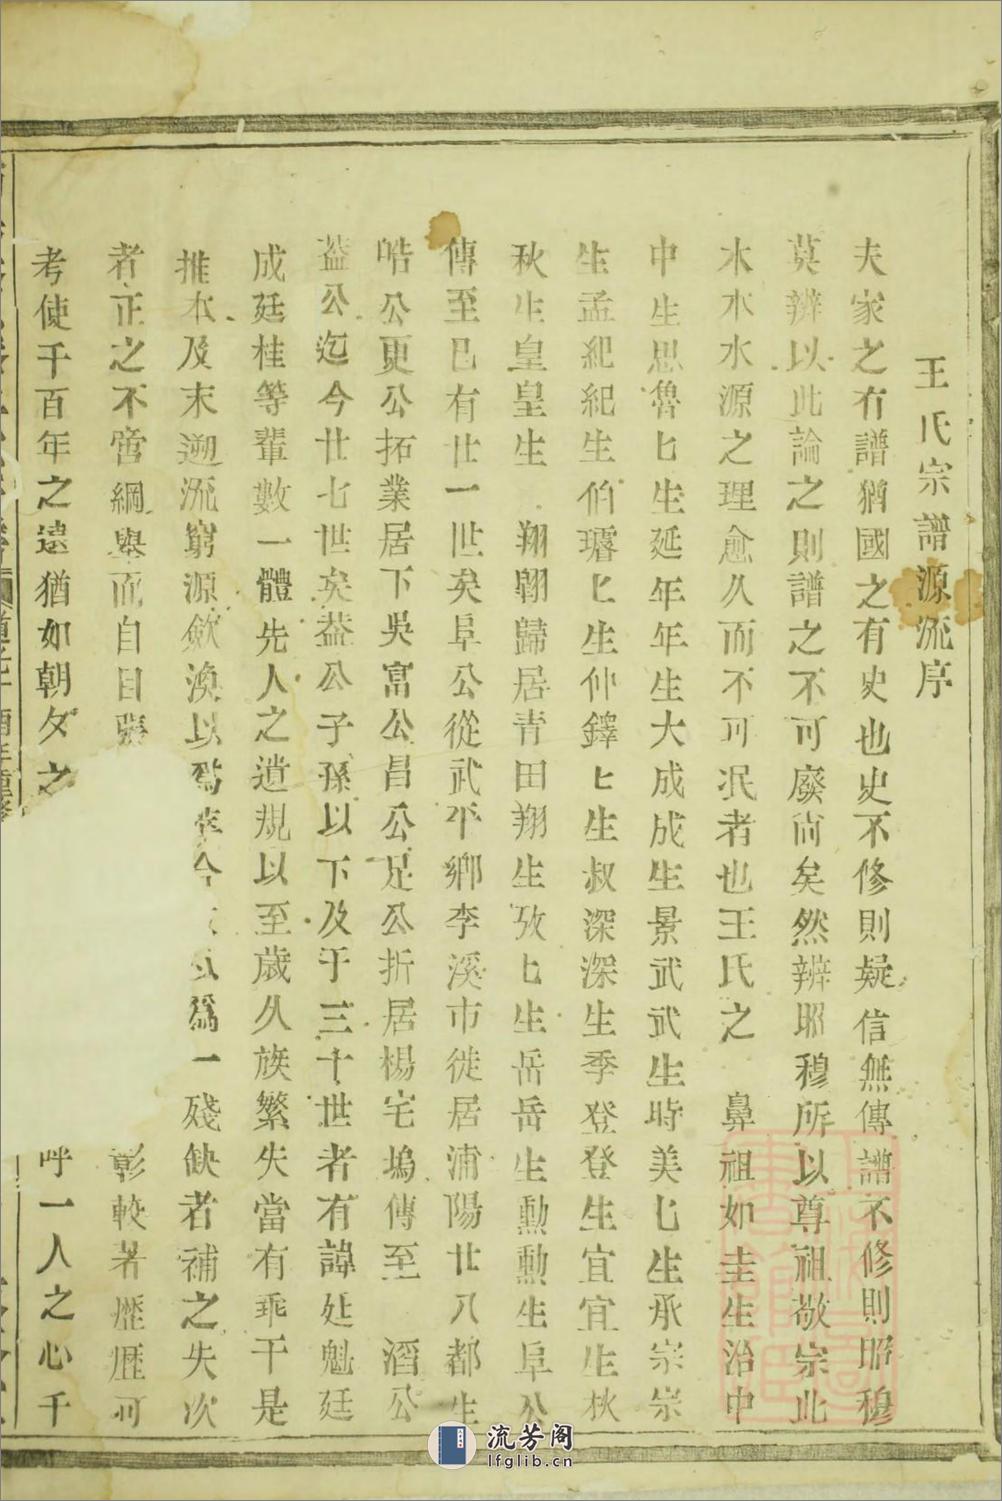 王氏宗譜源流序
夫家之有譜猶國之有史也史不修則疑信無傳譜不修則昭穆
莫辨以此論之則譜之不可廢尚矣然辨昭穆所以尊祖敬宗此
木本水源之理愈久而不可泯者也王氏之 鼻祖如圭生治中
中生思魯匕生延年年生大成成生景武武生時美匕生承宗宗
生孟紀紀生伯璿匕生仲鐸匕生叔深深生季登登生宜宜生秋
秋生皇皇生 翔翱歸居青田翔生攷匕生岳岳生勳勳生阜公
傳至巳有廿一世矣阜公從武平鄉李溪市徙居浦陽廿八都生
皓公更公拓業居下吳富公昌公足公折居楊宅塢傳至 滔公
益公迄今廿七世矣益公子孫以下及于三十世者有諱延魁廷
成廷桂等輩數一體先人之遺規以至歲久族繁失當有乖于是
推本及末遡流窮源歛渙以爲萃今 爲一殘缺者補之失次
者正之不啻綱舉而自目張 彰較著歷歷可
考使千百年之遠猶如朝夕之 呼一人之心千
流芳阁
lfglib.cn